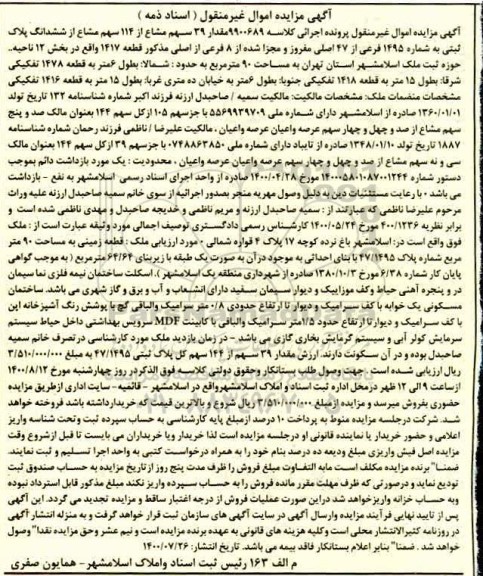 آگهی مزایده اموال غیرمنقول ( اسناد ذمه )
آگهی مزایده اموال غیرمنقول پرونده اجرائی کلاسه ۹۹۰۰۶۸۹مقدار ۳۹ سهم مشاع از ۱۱۴ سهم مشاع از ششدانگ پلاک
ثبتی به شماره ۱۴۹۵ فرعی از ۴۷ اصلی مفروز و مجزا شده از ۸ فرعی از اصلی مذکور قطعه ۱۴۱۷ واقع در بخش ۱۲ ناحیه..
حوزه ثبت ملک اسلامشهر استان تهران به مساحت ۹۰ مترمربع به حدود : شمالا: بطول ۶متر به قطعه ۱۴۷۸ تفکیکی
شرقا: بطول ۱۵ متر به قطعه ۱۴۱۸ تفکیکی جنوبا: بطول ۶متر به خیابان ده متری غربا: بطول ۱۵ متر به قطعه ۱۴۱۶ تفکیکی
مشخصات منضمات ملک: مشخصات مالکیت: مالکیت سمیه / صاحبدل ارزنه فرزند اکبر شماره شناسنامه ۱۳۲ تاریخ تولد
۱۳۶۰/۰۱/۰۱ صادره از اسلامشهر دارای شماره ملی ۵۵۶۹۹۳۹۷۰۹ با جزسهم ۱۰۵ ازکل سهم ۱۴۴ بعنوان مالک صد و پنج
سهم مشاع از صد و چهل و چهار سهم عرصه واعیان عرصه واعیان ، مالکیت علیرضا / ناظمی فرزند رحمان شماره شناسنامه
۱۸۸۷ تاریخ تولد ۱۳۴۸/۰۱/۱۰ صادره از تایباد دارای شماره ملی ۰۷۴۸۸۶۳۸۵۰ با جزسهم ۳۹ ازکل سهم ۱۴۴ بعنوان مالک
سی و نه سهم مشاع از صد و چهل و چهار سهم عرصه واعیان عرصه واعیان ، محدودیت : یک مورد بازداشت دائم بموجب
دستور شماره ۱۴۰۰۰۵۸۰۱۰۸۷۰۰۱۲۴۴ مورخ ۱۴۰۰/۰۴/۲۸ صادره از واحد اجرای اسناد رسمی اسلامشهر به نفع - بازداشت
می باشد ۰ با رعایت مستثنیات دین به دلیل وصول مهریه منجر بصدور اجرائیه از سوی خانم سمیه صاحبدل ارزنه علیه وراث
مرحوم علیرضا ناظمی که عبارتند از : سمیه صاحبدل ارزنه و مریم ناظمی و خدیجه صاحبدل و مهدی ناظمی شده است و
برابر نظریه ۴۰۰۱۲۳۶ مورخ ۱۴۰۰/۰۵/۲۴ کارشناس رسمی دادگستری توصیف اجمالی مورد وثیقه عبارت است از : ملک
فوق واقع است در: اسلامشهر باغ نرده کوچه ۱۷ پلاک ۴ قواره شمالی . مورد ارزیابی ملک : قطعه زمینی به مساحت ۹۰ متر
مربع شماره پلاک ۴۷/۱۴۹۵ با بنای احداثی به موجود در آن به صورت یک طبقه با زیربنای ۶۴/۶۴ مترمربع ( به موجب گواهی
پایان کار شماره ۶/۳۸ مورخ ۱۳۸۰/۱۰/۳ صادره از شهرداری منطقه یک اسلامشهر). اسکلت ساختمان نیمه فلزی نما سیمان
در و پنجره آهنی حیاط وکف موزاییک و دیوار سیمان سفید دارای انشعاب و آب و برق و گاز شهری می باشد. ساختمان
مسکونی یک خوابه با کف سرامیک و دیوار تا ارتفاع حدودی ۰/۸ متر سرامیک والباقی گچ با پوشش رنگ آشپزخانه اپن
با کف سرامیک و دیوارتا ارتفاع حدود ۱/۵متر سرامیک والباقی با کابینت MDF سرویس بهداشتی داخل حیاط سیستم
سرمایش کولر آبی و سیستم گرمایش بخاری گازی می باشد – در زمان بازدید ملک مورد کارشناسی در تصرف خانم سمیه
صاحبدل بوده و در آن سکونت دارند. ارزش مقدار ۳۹ سهم از ۱۴۴ سهم کل پلاک ثبتی ۴۷/۱۴۹۵ به مبلغ ۳/۵۱۰/۰۰۰/۰۰۰
ریال ارزیابی شده است . جهت وصول طلب بستانکار و حقوق دولتی کلاسه فوق الذکر در روز چهارشنبه مورخ ۱۴۰۰/۸/۱۲
ازساعت ۹ الی ۱۲ ظهر درمحل اداره ثبت اسناد و املاک اسلامشهرواقع در اسلامشهر - قائمیه - سایت اداری ازطریق مزایده
حضوری بفروش میرسد و مزایده از مبلغ ۳/۵۱۰/۰۰۰/۰۰۰ ریال شروع و بالاترین قیمت که خریدارداشته باشد فروخته خواهد
شد. شرکت درجلسه مزایده منوط به پرداخت ۱۰ درصد ازمبلغ پایه کارشناسی به حساب سپرده ثبت وتحت شناسه واریز
اعلامی و حضور خریدار یا نماینده قانونی او درجلسه مزایده است لذا خریدار ویا خریداران می بایست تا قبل ازشروع وقت
مزایده اصل فیش واریزی مبلغ ودیعه ده درصد بنام خود را به همراه درخواست کتبی به واحد اجرا تسلیم و ثبت نمایند.
ضمنا" برنده مزایده مکلف است مابه التفاوت مبلغ فروش را ظرف مدت پنج روز ازتاریخ مزایده به حساب صندوق ثبت
تودیع نماید و درصورتی که ظرف مهلت مقرر مانده فروش را به حساب سپرده واریز نکند مبلغ مذکور قابل استرداد نبوده
وبه حساب خزانه واریزخواهد شد دراین صورت عملیات فروش از درجه اعتبار ساقط و مزایده تجدید می گردد. این آگهی
پس از تایید نهایی فرآیند مزایده وارسال آگهی در سایت آگهی های سازمان ثبت قرار خواهد گرفت و به منزله انتشار آگهی
در روزنامه کثیرالانتشار محلی است وکلیه هزینه های قانونی به عهده برنده مزایده است و نیم عشر وحق مزایده نقدا" وصول
خواهد شد . ضمنا" بنابر اعلام بستانکار فاقد بیمه می باشد. تاریخ انتشار: ۱۴۰۰/۰۷/۲۶
م الف ۱۶۳ رئیس ثبت اسناد واملاک اسلامشهر- همایون صفری